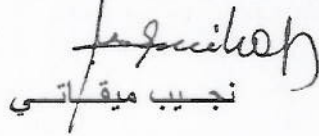 نجيب ميقاتي